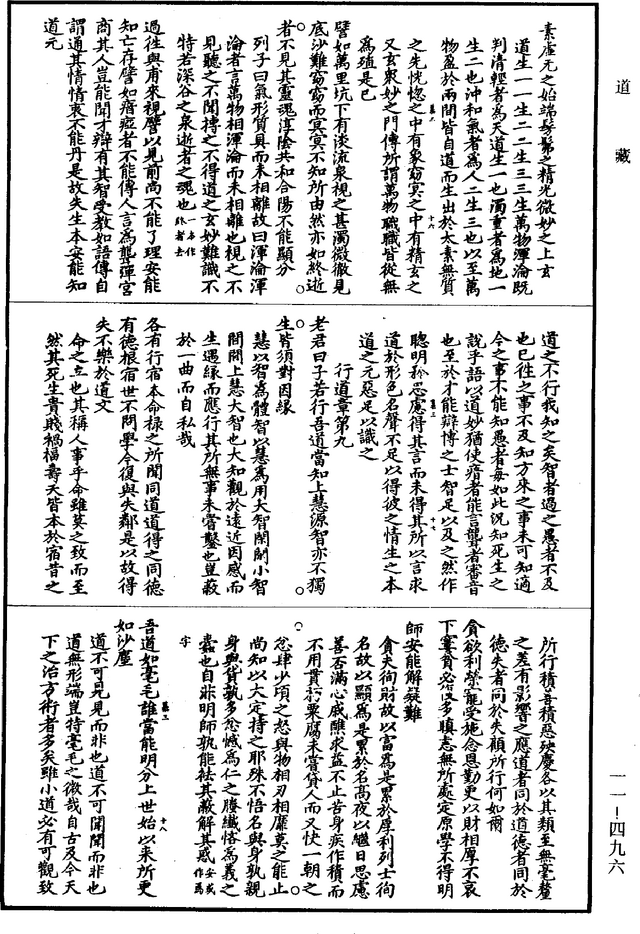 道藏
素虛元之始端髣髴之精光微妙之上玄
道生一一生二二生三三生萬物渾淪既
判清輕者為天道生一也濁重者為地一
生二也沖和氣者為人二生三也以至萬
物盈於兩間皆自道而生出於太素無質
之先恍惚之中有象窈冥之中有精玄之
又玄衆妙之門傳所謂萬物職職皆從無
為殖是已
譬如萬里坑下有淡流泉視之甚濁微徹見
底沙難窈窈而冥冥不知所由然亦如終逝
者不見其靈魂淳陰共和合陽不能顯分
列子曰氣形質具而未相離故曰渾淪渾
淪者言萬物相渾淪而未相離也視之不
見聽之不聞摶之不得道之玄妙難識不
特若深谷之泉逝者之魂也一名作終者去
過往與甫來視譬以見前尚不能了理安能
知亡存譬如瘖瘂者不能傳人言為聾彈宮
商其人豈能聞才辯有其智受教如語傳自
謂通其情情衷不能丹是故失生本安能知
道元
道之不行我知之矣智者過之愚者不及
也已往之事不及知方來之事未可知適
今之事不能知愚者每如此況知死生之
說乎語以道妙猶使瘖者能言聾者審音
也至於才能辯博之士智足以及之然作
聰明矜思慮得其言而未得其所以言求
道於形色名聲不足以得彼之情生之本
道之元惡足以識之
行道章第九
老君曰子若行吾道當知上慧源智亦不獨
生皆須對因緣
慧以智為體智以慧為用大智閑閑小智
間間上慧大智也大知觀於遠近因感而
生遇緣而應行其所無事未嘗鑿也豈蔽
於一曲而自私哉
各有行宿本命祿之所聞同道道得之同德
有德根宿世不問學今復與失鄰是以故得
失不樂於道文
命之立也其稱人事乎命雖莫之致而至
然其死生貴賤禍福壽夭皆本於宿昔之
所行積善積惡殃慶各以其類至無毫釐
之差有影響之應道者同於道德者同於
德失者同於失顧所行何如爾
貪欲利榮寵受施念恩勤更以財相厚不哀
下窶貧必復多瞋恚無所處定原學不得明
師安能解疑難
貪夫徇財故以富為是累於厚利列士徇
名故以顯為是累於名高夜以繼日思慮
善否滿心戚醮求益不止苦身疾作積而
不用貫朽粟腐未嘗貸人而又快一朝之
忿肆少頃之怒與物相刃相靡莫之能止
尚知以大定持之耶殊不悟名與身孰親
身與貨孰多忿憾為仁之賸纖悋為義之
蠹也自非明師孰能袪其蔽解其惑安或作為字
吾道如毫毛誰當能明分上世始以來所更
如沙塵
道不可見見而非也道不可聞聞而非也
道無形端豈特毫毛之微哉自古及今天
下之治方術者多矣雖小道必有可觀致
一一-四九六